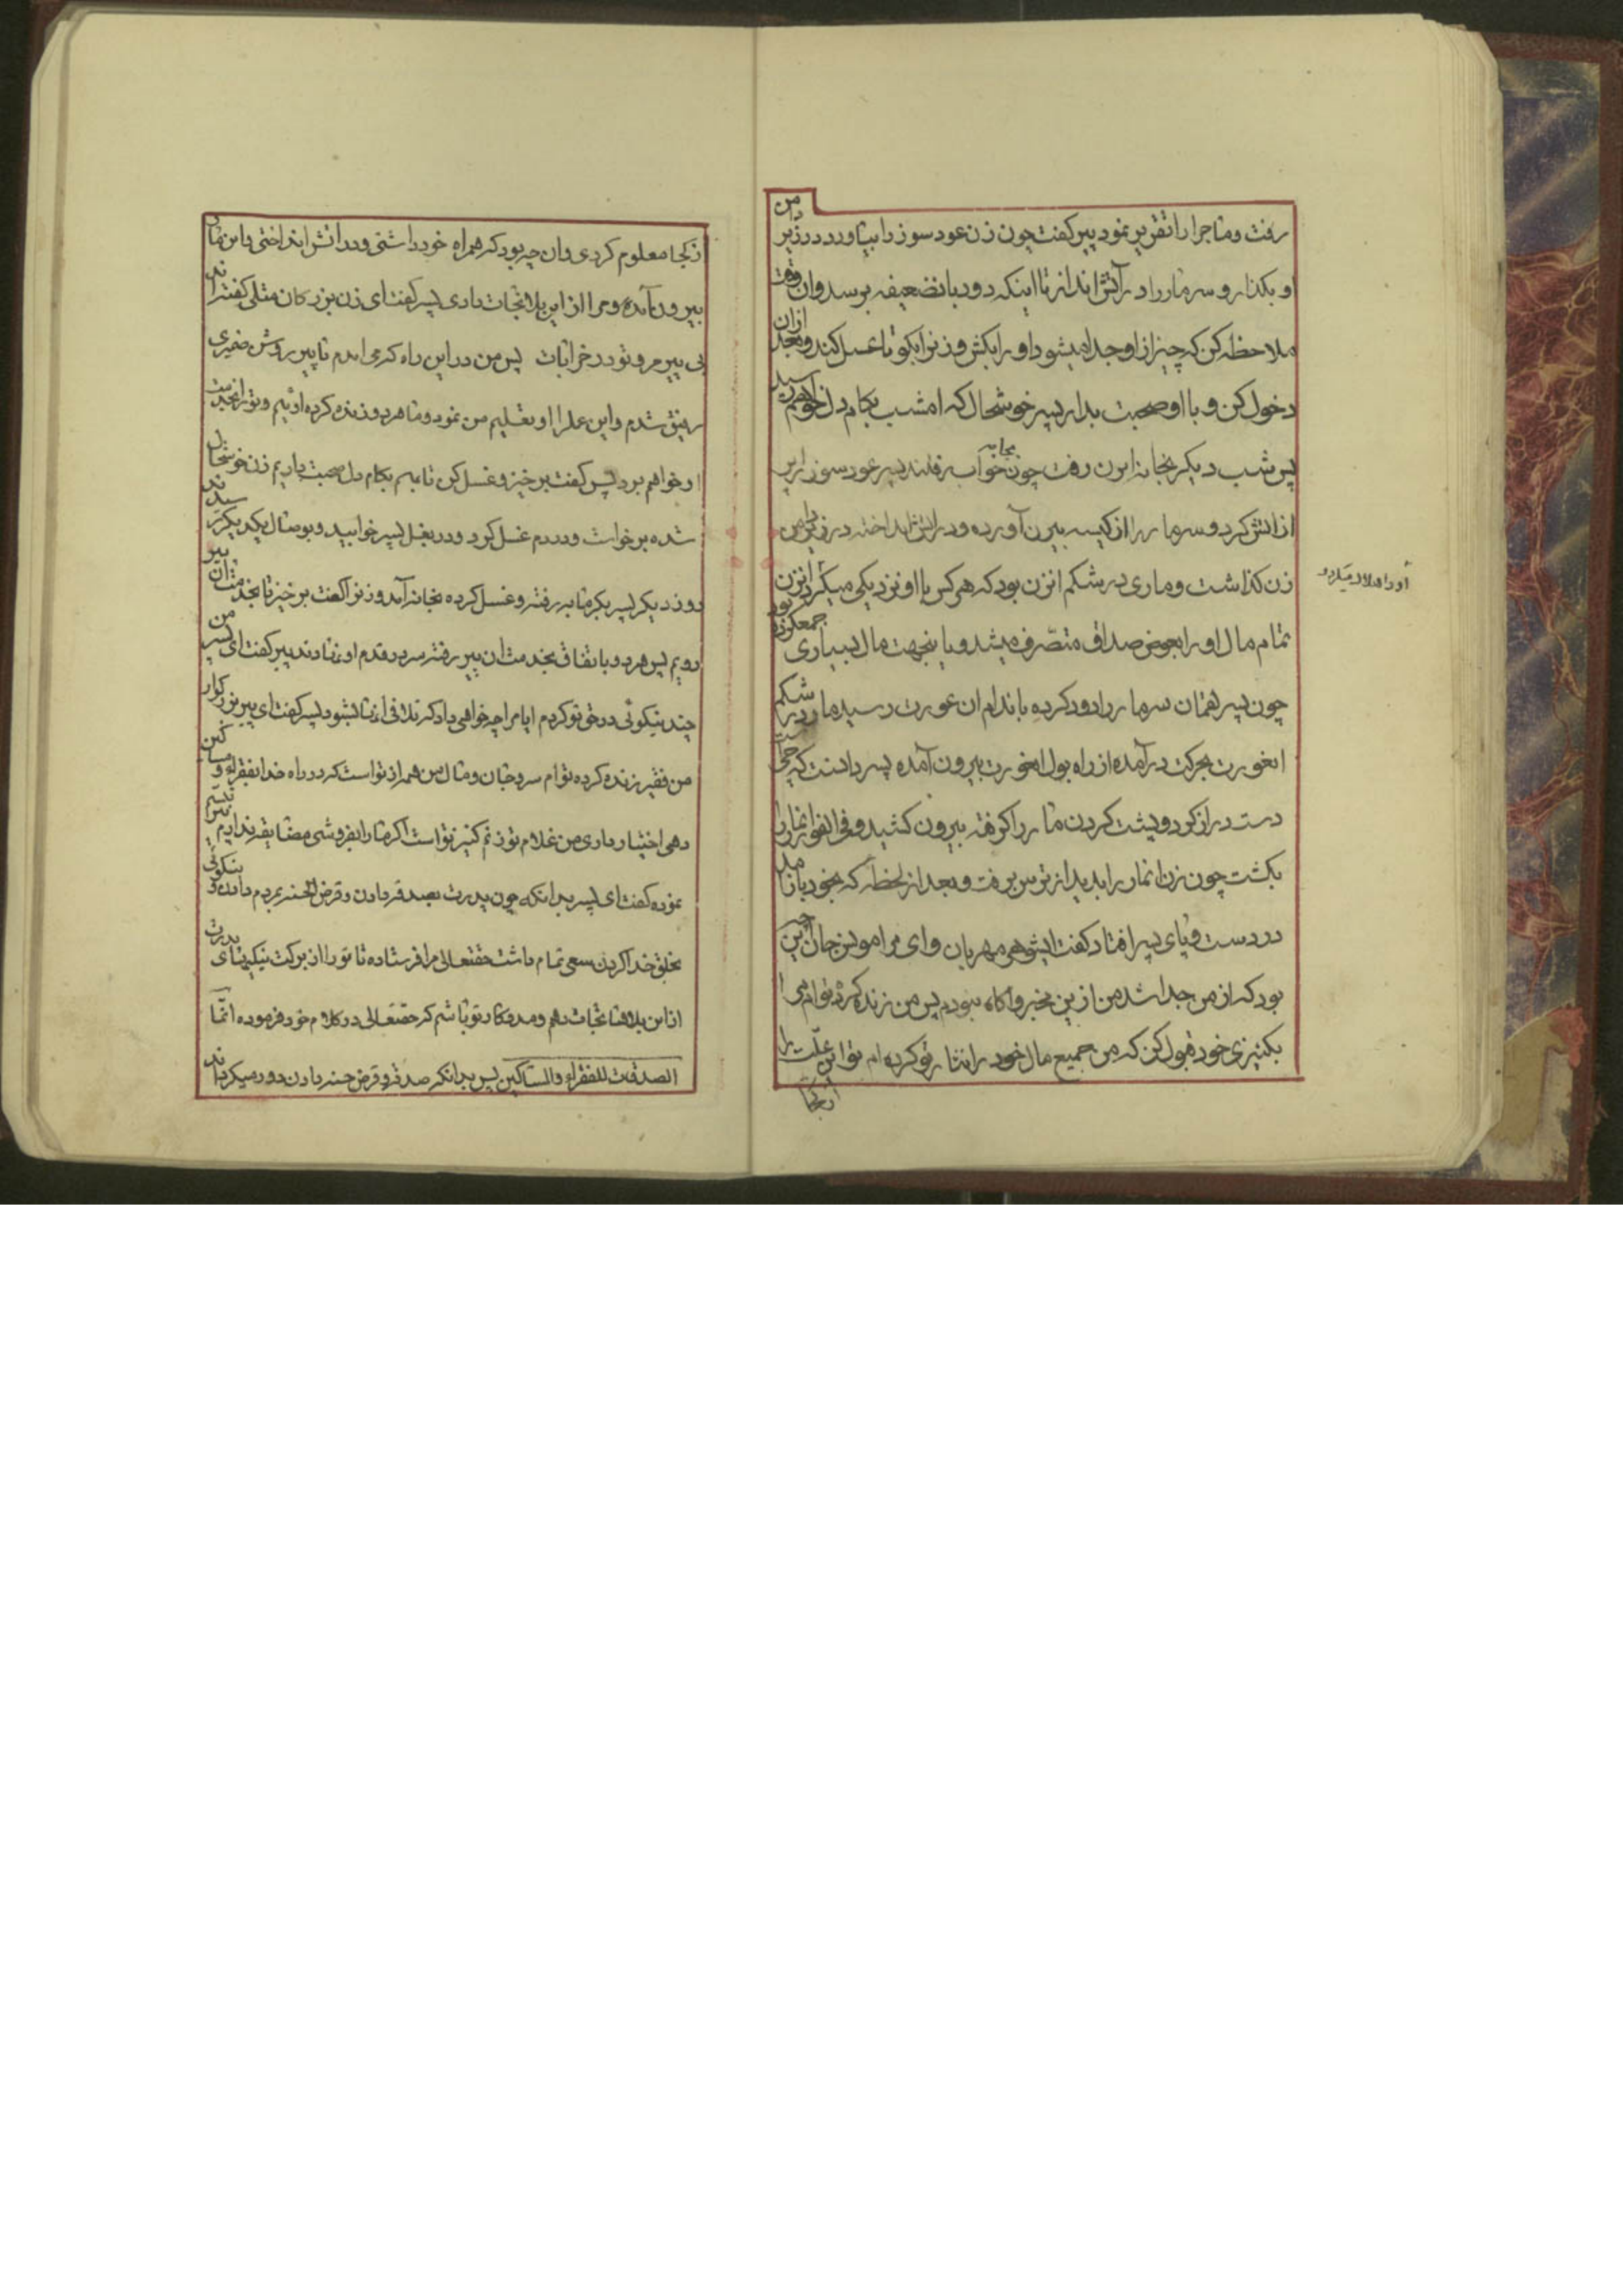 رفت و ماجرا را تقریر نمود پیر کفت چون زن عود سوز را بیاورد در زیر دامن
او بکذار و سر مار را در آتش انداز تا اینکه دود بانضعیفه برسد وان وقت
ملاحظه کن که چیز از او جدا میشود او را بکش و زنرا بکو تا غسل کند و بعد ازان
دخول کن و با او صحبت بدار پسر خوشحال که امشب بکام دل خواهم رسید
پس شب دیکر بخانه ان زن رفت چون بجامه خواب رفتند پسر عود سوز را پر
از اتش کرد و سر مار را از کیسه بیرن آورده و در اتش انداخته در زیر دامن
زن کذاشت و ماری در شکم انزن بود که هر کس با او نزدیکی میکرد انزن
تمام مال او را بعوض صداق متصّرف میشد و باینجهت مال بسیاری جمعکرده بود
چون پسر همان سر مار را دود کرده باندام ان عورت رسید مار در شکم
انعورت بحرکت درآمده از راه بول انعورت بیرون آمده پسر دانست که چیست
دست دراز کرد و پشت کردن مار را کرفته بیرون کشید و فی الفور انمار را
بکشت چون زن انمار را بدید از ترس برفت و بعد از لحظه که بخود باز آمد
در دست و پای پسر افتاد کفت ایشوهر مهربان و ای مرا مونس جان این چیز
بود که از من جدا شد من ازین بیخبر و آکاه نبودم پس من زنده کرده توام مرا
بکنیزی خود قبول کن که من جمیع مال خود را نثار تو کرده ام تو این علّت را
ازکجا
ازکجا معلوم کردی وان چه بود که همراه خود داشتی و در اتش انداختی و این مار
بیرون آمده و مرا از این بلا نجات دادی پسر کفت ای زن بزرکان مثلی کفته اند
بی پیر مرو تو در خرابات پس من در این راه که می امدم با پیر روشن ضمیری
رفیق شدم و این عملرا او بتعلیم من نمود و ما هر دو زنده کرده اوئیم و تو را بخدمت
او خواهم برد پس کفت برخیز و غسل کن تا بهم بکام دل صحبت داریم زن خوشحال
شده برخواست و در دم غسل کرد و در بغل پسر خوابید و بوصال یکدیکر رسیدند
روز دیکر پسر بکرمابه رفته و غسل کرده بخانه آمد و زنرا کفت برخیز تا بخدمت ان پیر
رویم پس هر دو باتفاق بخدمت ان پیر رفته سر در قدم او نهادند پیر کفت ای پسر من
چند نیکوئی در حق تو کردم ایا مرا چه خواهی داد که تلافی انها بشود پسر کفت ای پیر بزرکوار
من فقیر زنده کرده توام سر و جان و مال من همه از تو است که در راه خدا بفقرا و مساکین
دهی اختیار داری من غلام تو زنم کنیز تو است اکر ما را بفروشی مضایقه نداریم پیر تبسّم
نموده کفت ای پسر بدانکه چون پدرت بصدقه دادن و قرض الحسنه بمردم دادن و نیکوئی
بخلق خدا کردن سعی تمام داشت حقتعالی مرا فرستاده تا تو را از برکت نیکیهای پدرت
از این بلاها نجات دهم و مددکار تو باشم که حقتعالی در کلام خود فرموده انّما
الصدقات للفقراء والمساکین پس بدانکه صدقه و قرض حسنه دادن دور میکرداند